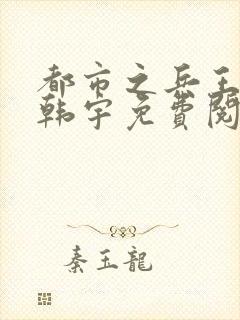 都市之兵王
韩宇免費閱
秦玉龍